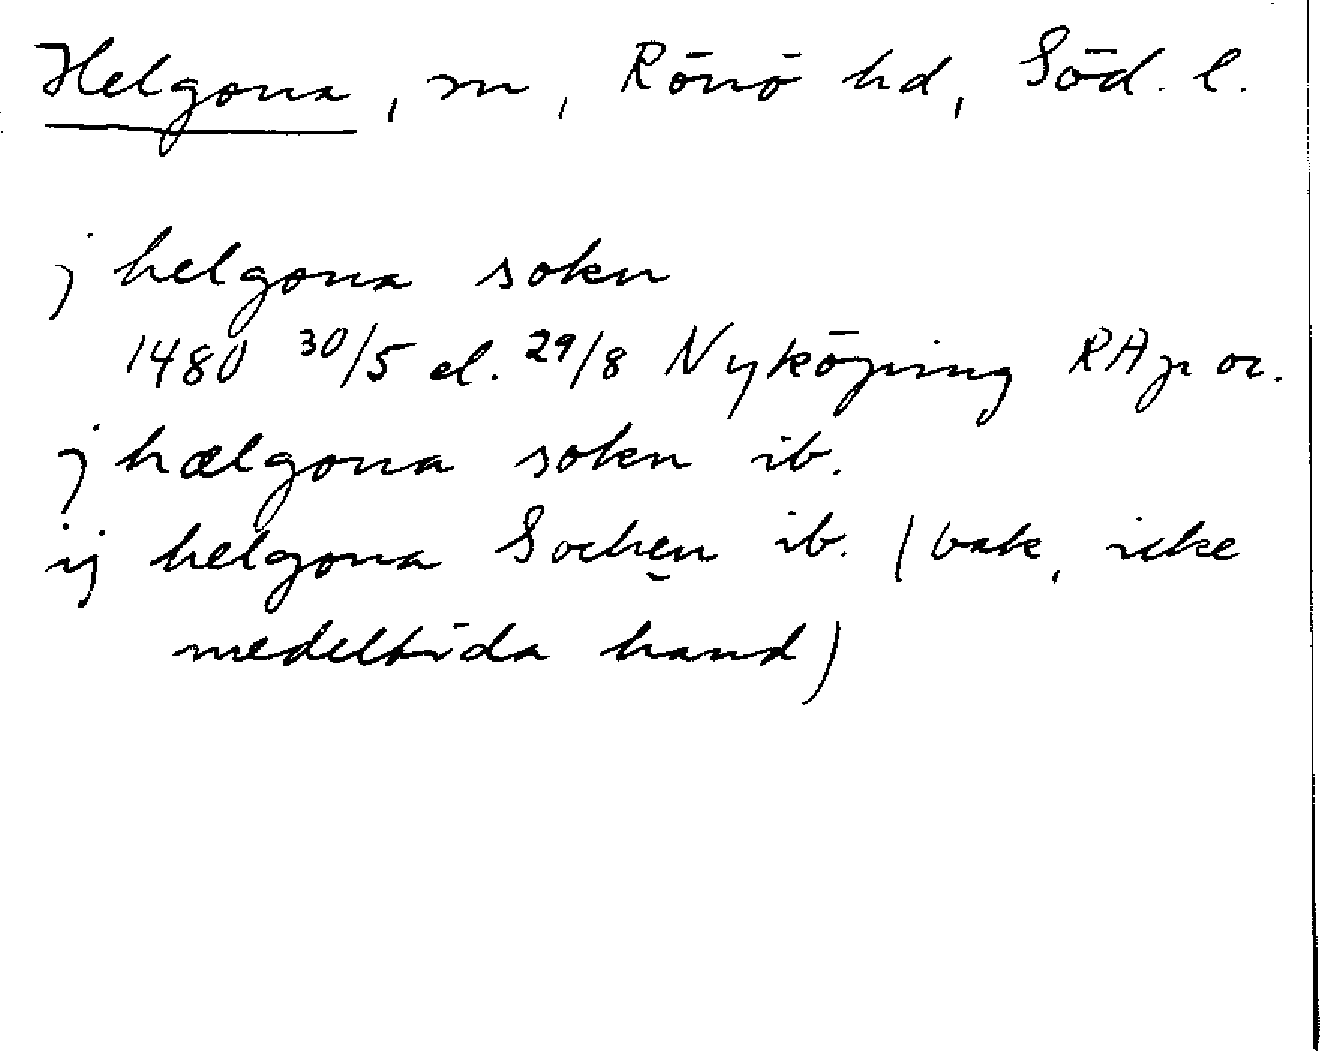 Helgona, sn, Rönö hd, Söd. l.
j helgona sokn
1480 30/5 el. 29/8 Nyköping RAp or.
j hælgona sokn ib.
ij helgona Sochen ib. (bak, icke
medeltida hand)